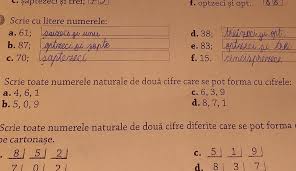 c. șaptezeci și trei; 73 f. optzeci și opt. 88
Scrie cu litere numerele:
a. 61; șaizeci și unu d. 38; treizeci și opt
b. 87; optzeci și șapte e. 83; optzeci și trei
c. 70; șaptezeci f. 15. cincisprezece
Scrie toate numerele naturale de două cifre care se pot forma cu cifrele:
a. 4, 6, 1 c. 6, 3, 9
b. 5, 0, 9 d. 8, 7, 1
Scrie toate numerele naturale de două cifre diferite care se pot forma
pe cartonașe.
8 5 2 c. 5 1 9
7 0 2 d. 8 3 7